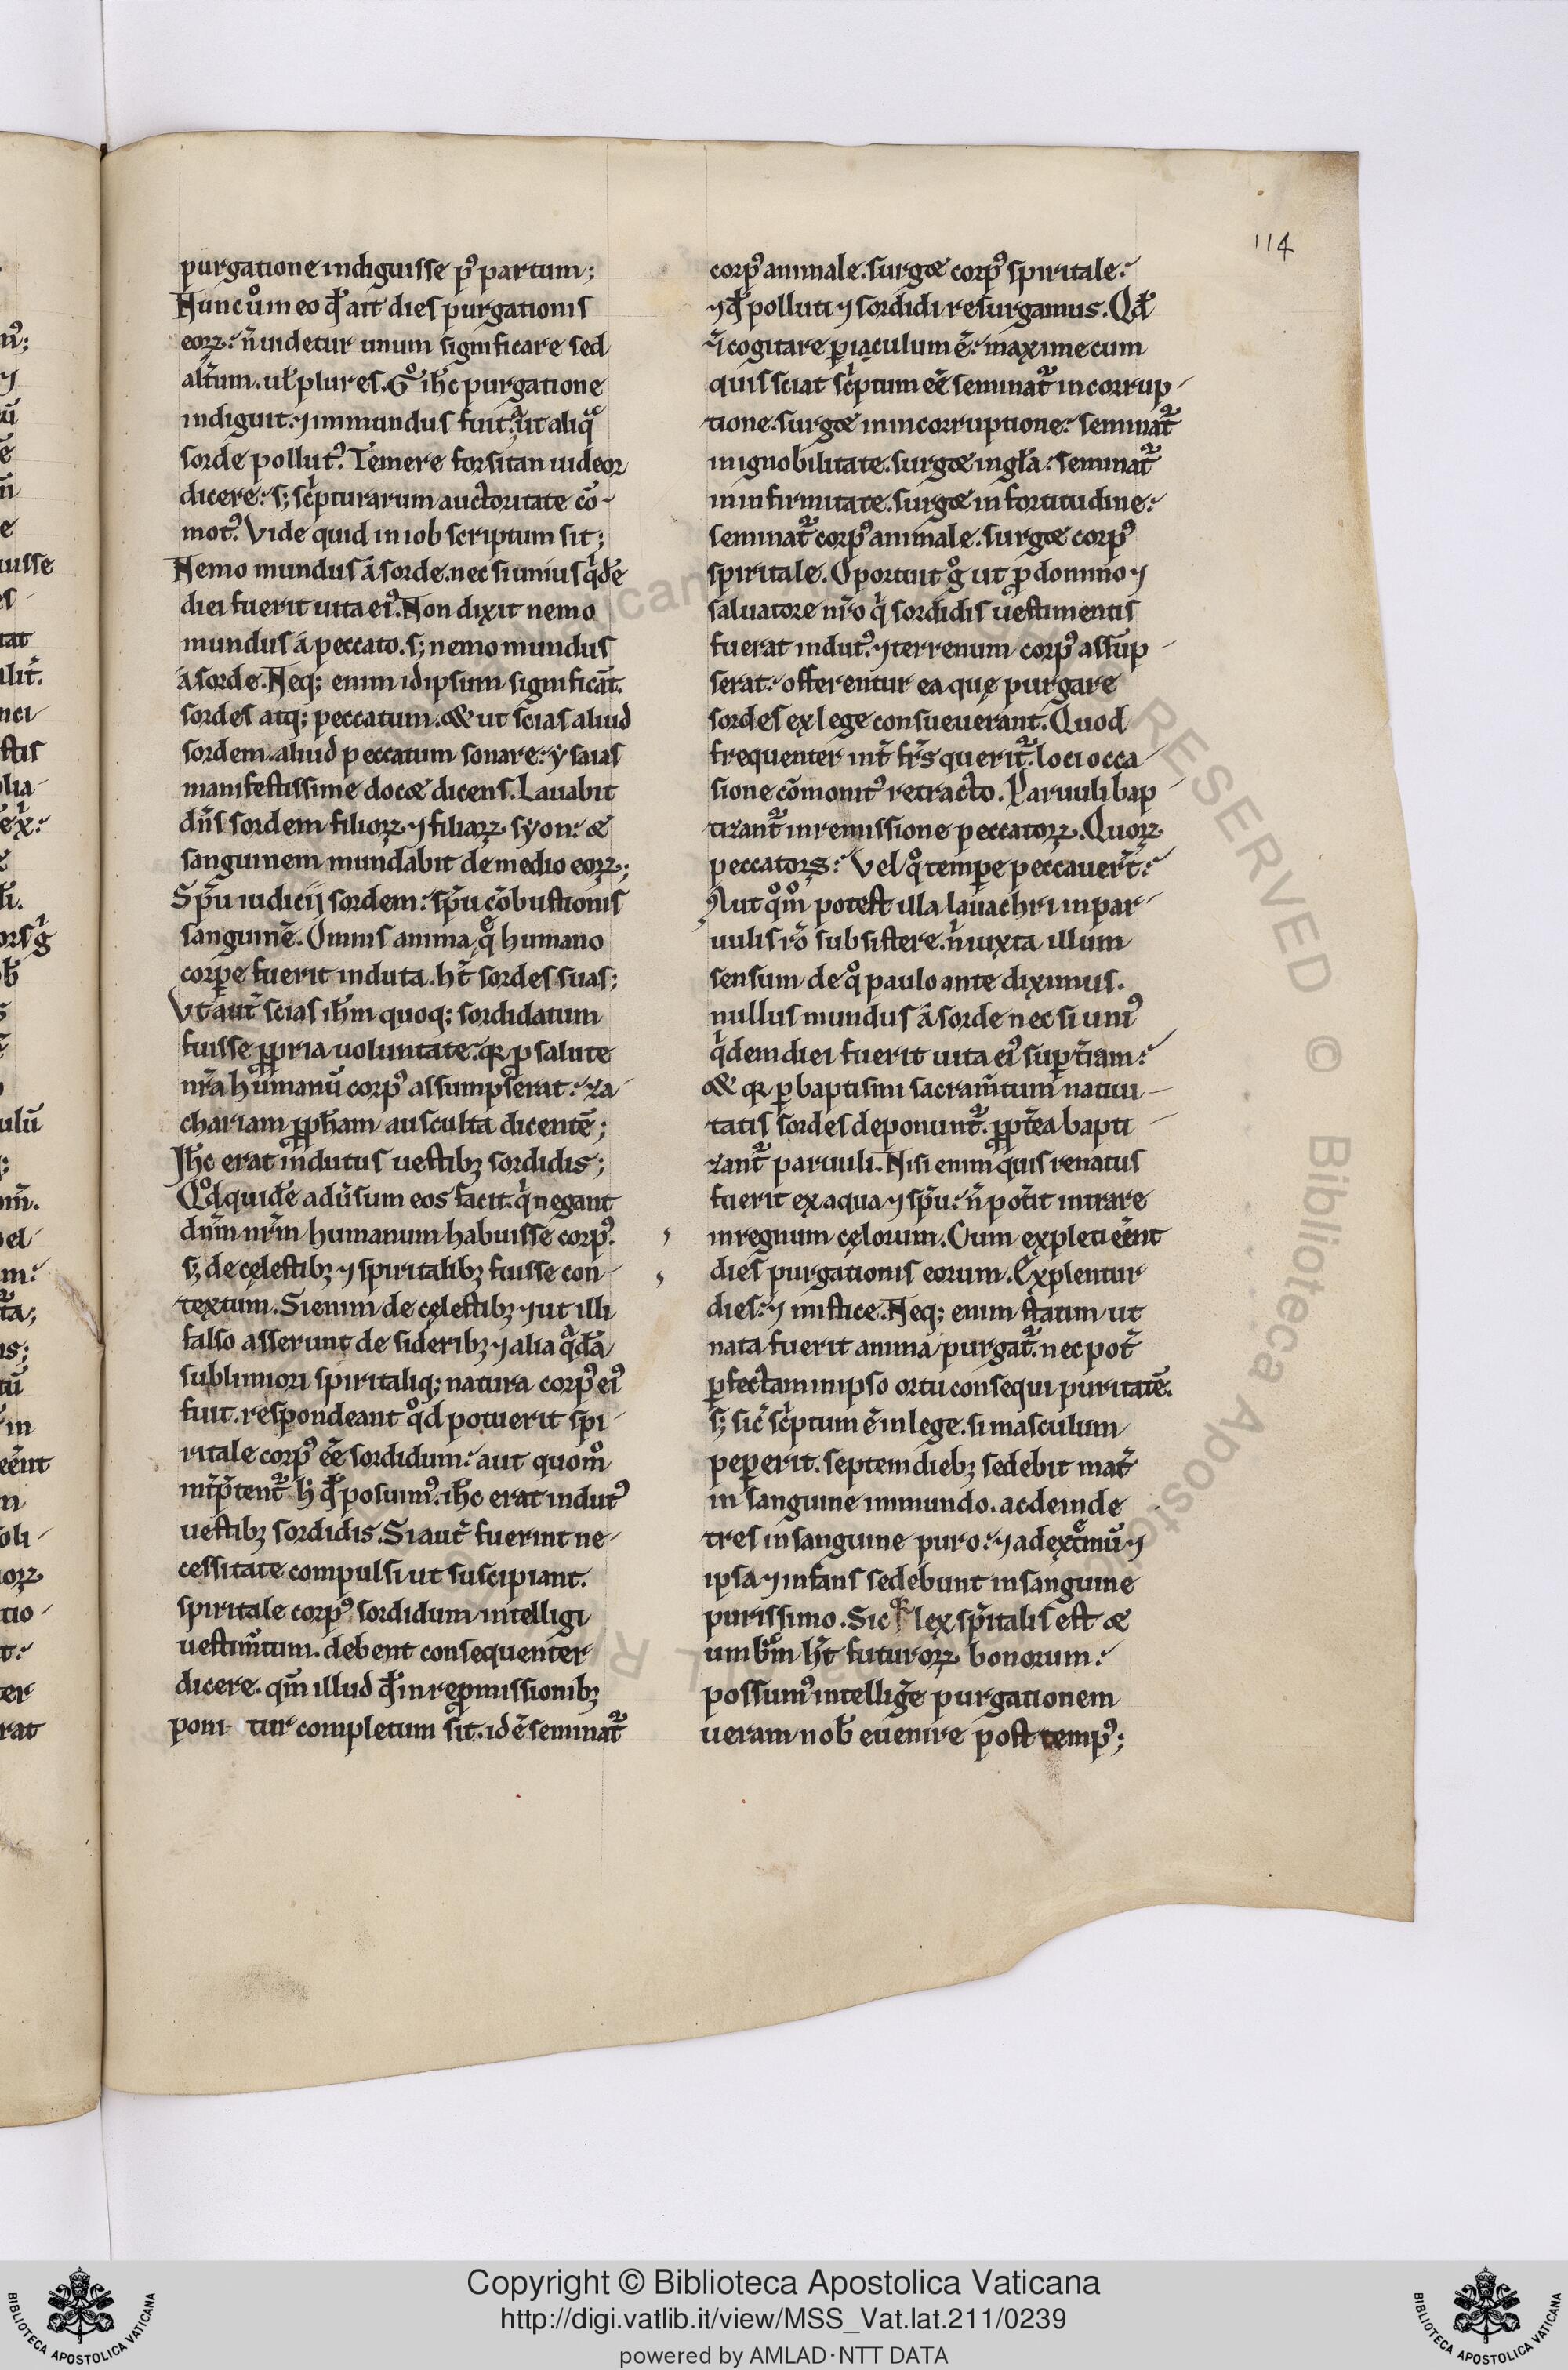 114
purgatione indiguisse pꝰ partum;
Nunc uͦ in eo qđ ait dies purgationis
eoꝝ: n̄ uidetur unum significare sed
alt̄um. uł plures. Gͦ ih̄c purgatione
indiguit: ⁊ inmundus fuit
sorde pollutꝰ. Temere forsitan uideor
dicere: s; scͥpturarum auctoritate cō-
motꝰ. Vide quid in iob scriptum sit;
Nemo mundus a sorde. nec si unius qͥdē
diei fuerit uita eiꝰ. Non dixit nemo
mundus a peccato. s; nemo mundus
a sorde. Neq; enim idipsum significāt.
sordes atq; peccatum. & ut scias aliud
sordem. aliud peccatum sonare: ysaias
manifestissime docet dicens. Lauabit
dn̄s sordem filioꝝ ⁊ filiaꝝ syon: et
sanguinem mundabit de medio eoꝝ;
Sp̄u iudicij sordem: sp̄u cōbustionis
sanguinē. Omnis anima, qͤ humano
corꝑe fuerit induta. ht̄ sordes suas;
Vt aut̄ scias ih̄m quoq; sordidatum
fuisse ꝓpria uoluntate: qꝛ ꝓ salute
nr̄a humanū corpꝰ assumpserat: za-
chariam ꝓph̄am ausculta dicentē;
Ih̄c erat indutus uestibꝫ sordidis;
Qͦd quidē adūsum eos facit. qͥ negant
dn̄m nr̄m humanum habuisse corpꝰ.
s; de cęlestibꝫ ⁊ spiritalibꝫ fuisse con-
textum. Si enim de cęlestibꝫ ⁊ ut illi
falso asserunt de sideribꝫ ⁊ alia qͣdā
sublimiori spiritaliq; natura corpꝰ eiꝰ
fuit. respondeant qͦd potuerit spi-
ritale corpꝰ eē sordidum: aut quom̊
int̄p̄tent᷑ h̄ qđ posuimꝰ. ih̄c erat indutꝰ
uestibꝫ sordidis. Si aut̄ fuerint ne-
cessitate compulsi ut suscipiant.
spiritale corpꝰ sordidum intelligi
uestim̄tum. debent consequenter
dicere. qm̄ illud qđ in reꝓmissionibꝫ
poni- tur completum sit. id ē seminat᷑
corpꝰ animale. surget corpꝰ spiritale:
⁊ qđ polluti ⁊ sordidi resurgamus. Qđ
⁊ cogitare piaculum ē: maxime cum
quis sciat scͥptum eē seminat᷑ in corrup-
tione. surget in incorruptione: seminat᷑
in ignobilitate. surget in gła: seminat᷑
in infirmitate. surget in fortitudine:
seminat᷑ corpꝰ animale. surget corpꝰ
spiritale. Oportuit gͦ ut ꝓ domino ⁊
saluatore nr̄o qͥ sordidis uestimentis
fuerat indutꝰ. ⁊ terrenum corpꝰ assup-
serat: offerentur ea quę purgare
sordes ex lege consueuerant. Quod
frequenter int̄ fr̄s querit᷑. loci occa-
sione cōmonitꝰ retracto. Paruuli bap-
tizant᷑ in remissione peccatoꝝ. Quoꝝ
peccatoꝝ: Vel qͦ temꝑe peccauer̄t:
Aut qͦm̊ potest illa lauachri in par-
uulis ro͂ subsistere. n̍ iuxta illum
sensum de qͦ paulo ante diximus.
nullus mundus a sorde nec si uniꝰ
qͥdem diei fuerit uita eiꝰ suꝑ t̄ram:
& qꝛ ꝑ baptismi sacram̄tum natiui-
tatis sordes deponunt᷑. ꝓpt̄ea bapti-
zant᷑ paruuli. Nisi enim quis renatus
fuerit ex aqua ⁊ sp̄u: n̄ pot̄it intrare
in regnum cęlorum. Cum expleti eēnt
dies purgationis eorum. Explentur
dies: ⁊ mistice. Neq; enim statim ut
nata fuerit anima purgat᷑. nec pot̄
ꝑfectam in ipso ortu consequi puritatē.
s; sic̄ scͥptum ē in lege. si masculum
peꝑerit. septem diebꝫ sedebit mat̄
in sanguine inmundo. ac deinde
tres in sanguine puro: ⁊ ad extͤmū ⁊
ipsa ⁊ infans sedebunt in sanguine
purissimo. Sic qꝛ lex sp̄italis est et
umbͣm ht̄ futuroꝝ bonorum:
possumꝰ intellige᷑ purgationem
ueram nob̄ euenire post tempꝰ;
Copyright © Biblioteca Apostolica Vaticana
http://digi.vatlib.it/view/MSS_Vat.lat.211/0239
powered by AMLAD·NTT DATA
BIBLIOTECA APOSTOLICA VATICANA
BIBLIOTECA APOSTOLICA VATICANA